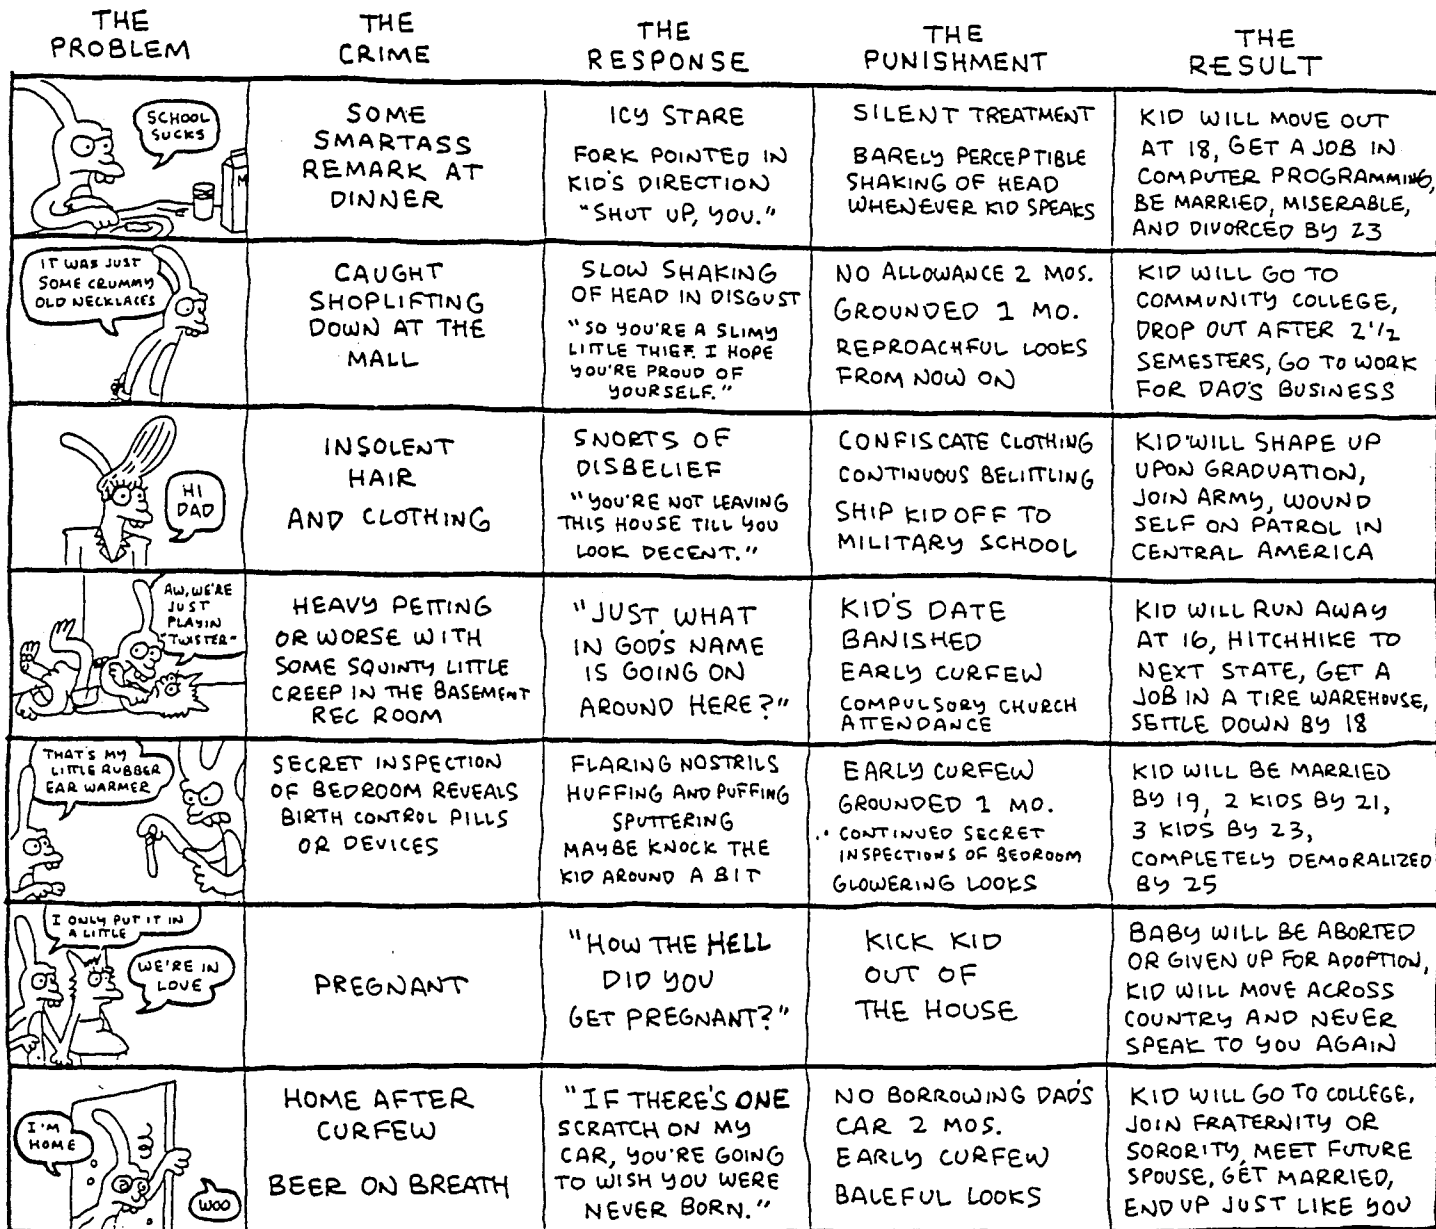 THE
PROBLEM
THE
CRIME
THE
RESPONSE
THE
PUNISHMENT
THE
RESULT
SCHOOL
SUCKS
M
SOME
SMARTASS
REMARK AT
DINNER
ICY STARE
FORK POINTED IN
KID'S DIRECTION
"SHUT UP, YOU."
SILENT TREATMENT
BARELY PERCEPTIBLE
SHAKING OF HEAD
WHENEVER KID SPEAKS
KID WILL MOVE OUT
AT 18, GET A JOB IN
COMPUTER PROGRAMMING,
BE MARRIED, MISERABLE,
AND DIVORCED BY 23
IT WAS JUST
SOME CRUMMY
OLD NECKLACES
CAUGHT
SHOPLIFTING
DOWN AT THE
MALL
SLOW SHAKING
OF HEAD IN DISGUST
"SO YOU'RE A SLIMY
LITTLE THIEF. I HOPE
YOU'RE PROUD OF
YOURSELF."
NO ALLOWANCE 2 MOS.
GROUNDED 1 MO.
REPROACHFUL LOOKS
FROM NOW ON
KID WILL GO TO
COMMUNITY COLLEGE,
DROP OUT AFTER 2 1/2
SEMESTERS, GO TO WORK
FOR DAD'S BUSINESS
HI
DAD
INSOLENT
HAIR
AND CLOTHING
SNORTS OF
DISBELIEF
"YOU'RE NOT LEAVING
THIS HOUSE TILL YOU
LOOK DECENT."
CONFISCATE CLOTHING
CONTINUOUS BELITTLING
SHIP KID OFF TO
MILITARY SCHOOL
KID WILL SHAPE UP
UPON GRADUATION,
JOIN ARMY, WOUND
SELF ON PATROL IN
CENTRAL AMERICA
AW, WE'RE
JUST
PLAYIN
"TWISTER"
HEAVY PETTING
OR WORSE WITH
SOME SQUINTY LITTLE
CREEP IN THE BASEMENT
REC ROOM
"JUST WHAT
IN GOD'S NAME
IS GOING ON
AROUND HERE?"
KID'S DATE
BANISHED
EARLY CURFEW
COMPULSORY CHURCH
ATTENDANCE
KID WILL RUN AWAY
AT 16, HITCHHIKE TO
NEXT STATE, GET A
JOB IN A TIRE WAREHOUSE,
SETTLE DOWN BY 18
THAT'S MY
LITTLE RUBBER
EAR WARMER
SECRET INSPECTION
OF BEDROOM REVEALS
BIRTH CONTROL PILLS
OR DEVICES
FLARING NOSTRILS
HUFFING AND PUFFING
SPUTTERING
MAYBE KNOCK THE
KID AROUND A BIT
EARLY CURFEW
GROUNDED 1 MO.
CONTINUED SECRET
INSPECTIONS OF BEDROOM
GLOWERING LOOKS
KID WILL BE MARRIED
BY 19, 2 KIDS BY 21,
3 KIDS BY 23,
COMPLETELY DEMORALIZED
BY 25
I ONLY PUT IT IN
A LITTLE
WE'RE IN
LOVE
PREGNANT
"HOW THE HELL
DID YOU
GET PREGNANT?"
KICK KID
OUT OF
THE HOUSE
BABY WILL BE ABORTED
OR GIVEN UP FOR ADOPTION,
KID WILL MOVE ACROSS
COUNTRY AND NEVER
SPEAK TO YOU AGAIN
I'M
HOME
WOO
HOME AFTER
CURFEW
BEER ON BREATH
"IF THERE'S ONE
SCRATCH ON MY
CAR, YOU'RE GOING
TO WISH YOU WERE
NEVER BORN."
NO BORROWING DAD'S
CAR 2 MOS.
EARLY CURFEW
BALEFUL LOOKS
KID WILL GO TO COLLEGE,
JOIN FRATERNITY OR
SORORITY, MEET FUTURE
SPOUSE, GET MARRIED,
END UP JUST LIKE YOU